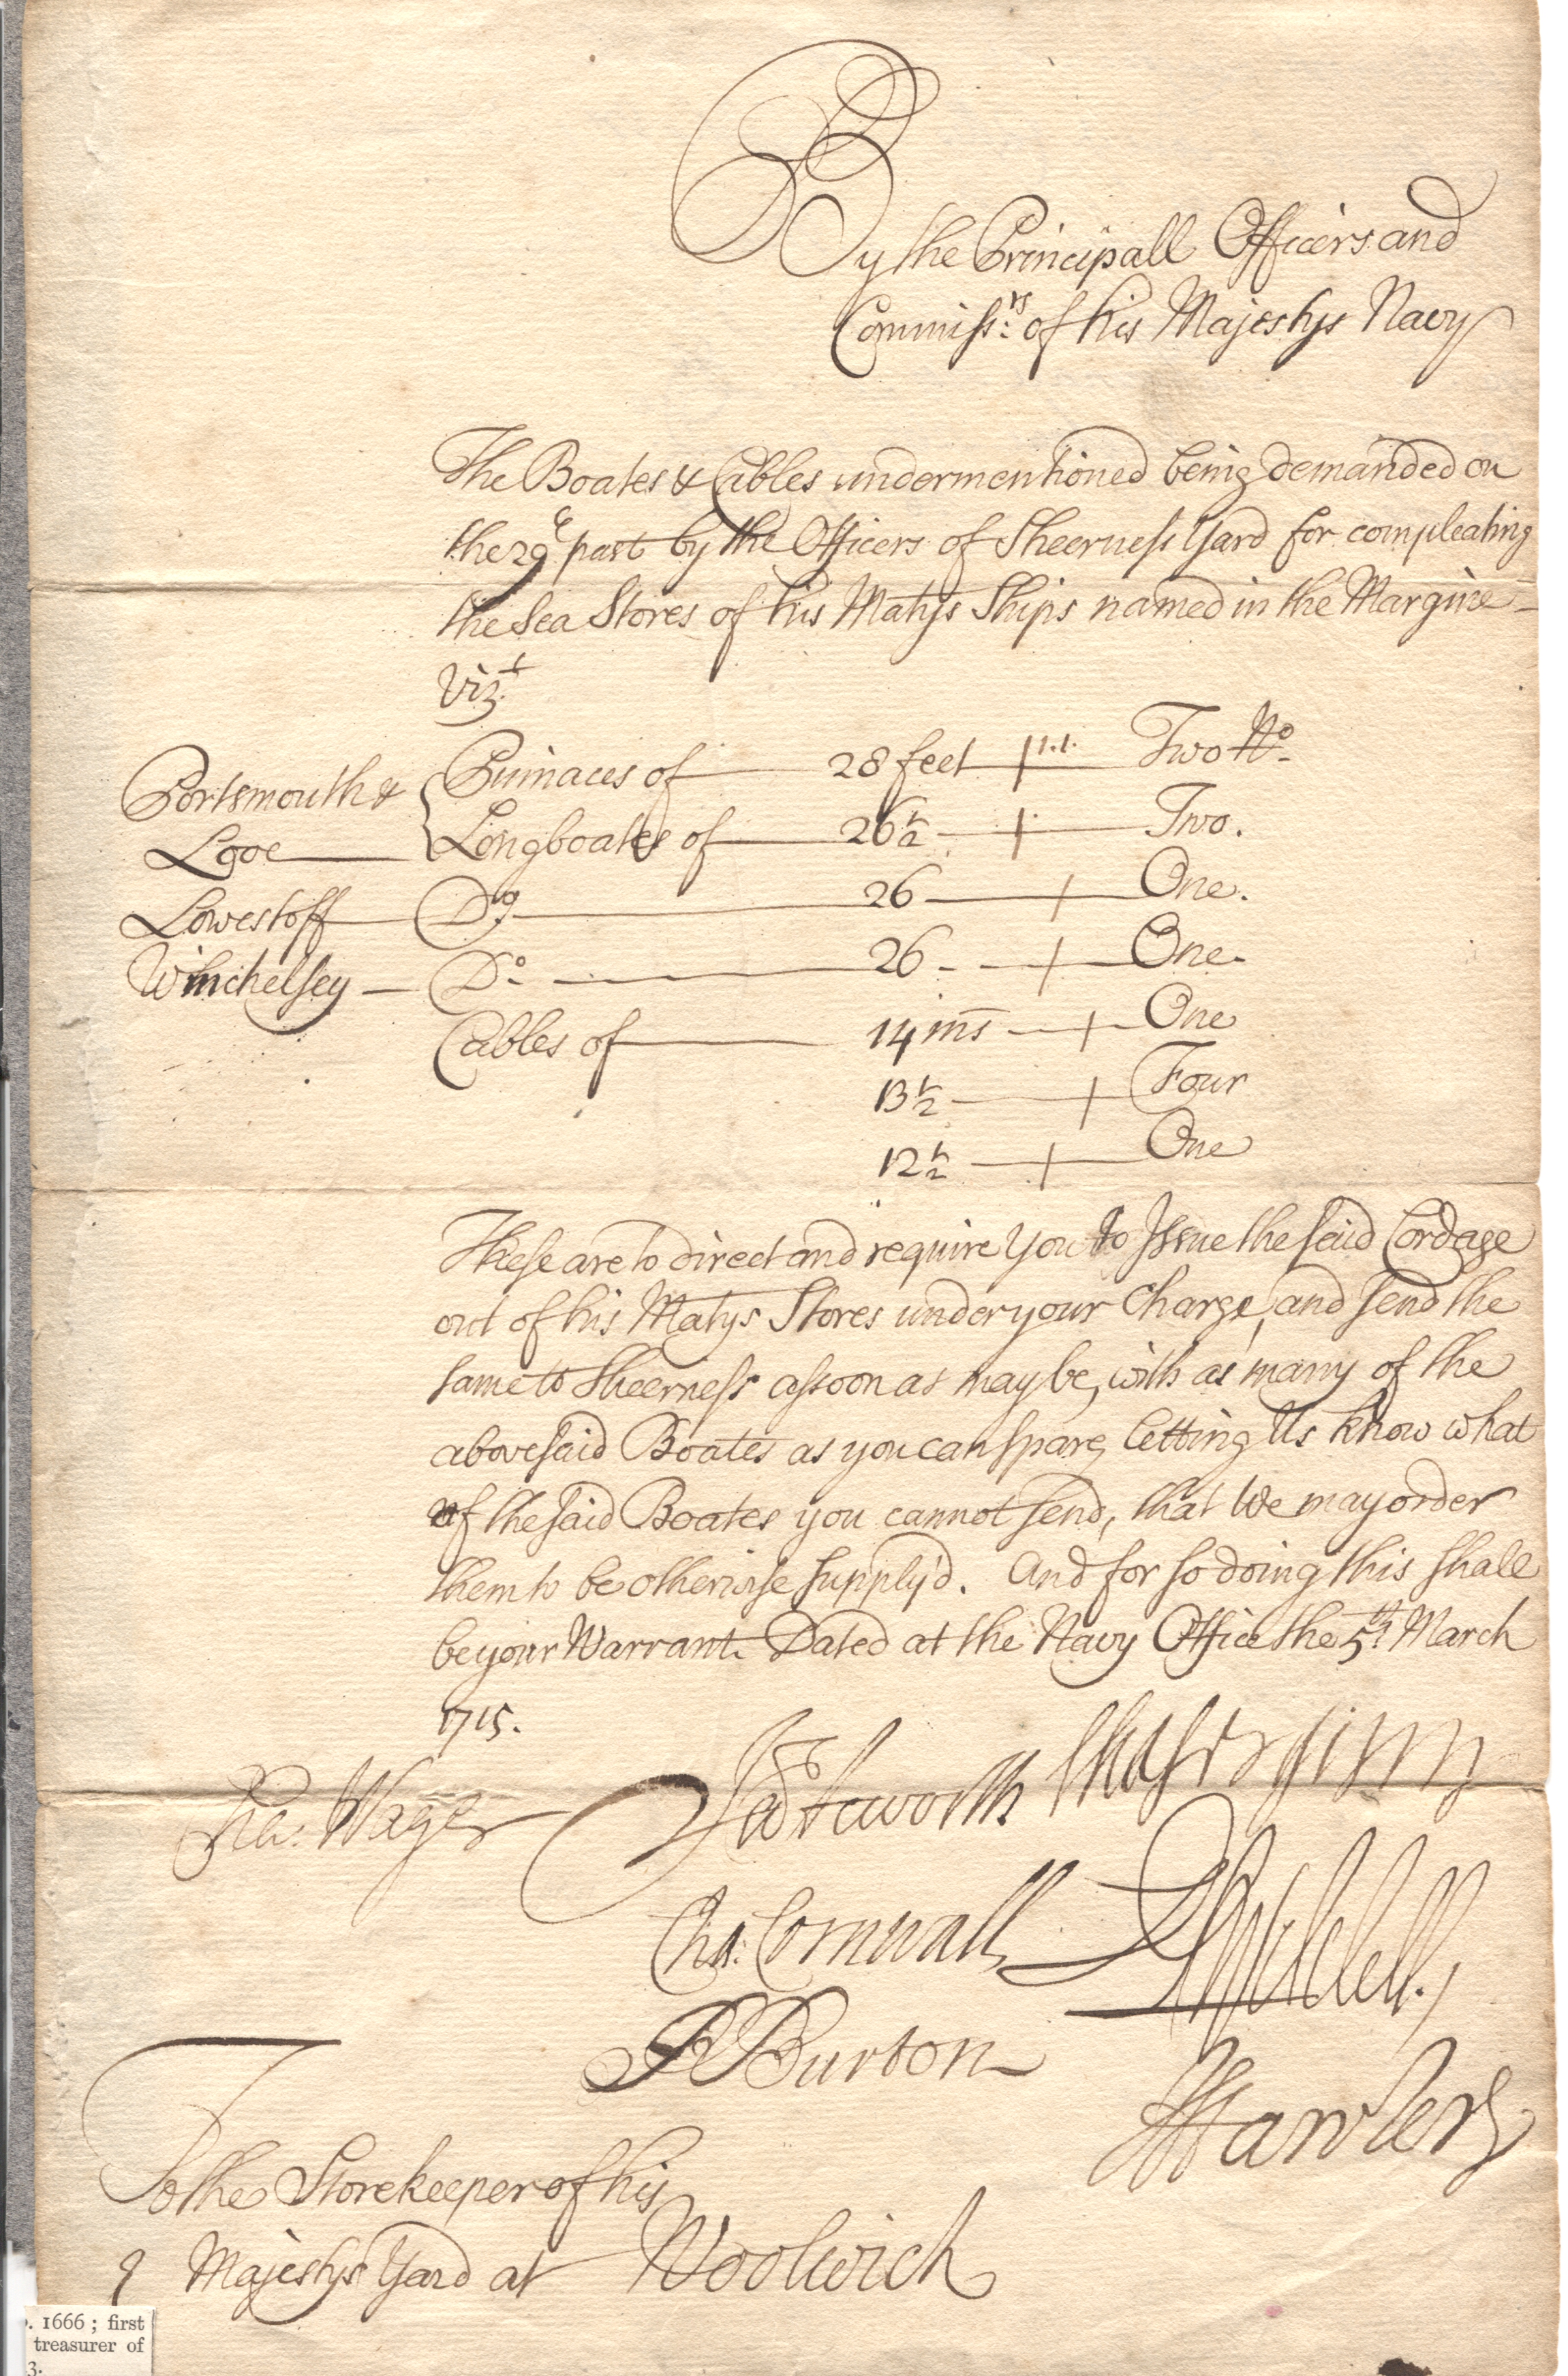 By the Principall Officers and
Commissrs: of his Majestys Navy
The Boates & Cables undermentioned being demanded on
the 29th past by the Officers of Sheerness Yard for compleating
the Sea Stores of his Matys Ships named in the Margine
Vizt.
Portsmouth & Pinnaces of 28 feet Two No.
Looe Longboates of 26½ Two.
Lowestoff Do. 26 One.
Winchelsey Do. 26 One.
Cables of 14 ins One
13½ Four
12½ One
These are to direct and require You to Issue the said Cordage
out of his Matys Stores under your Charge, and send the
same to Sheerness assoon as may be, with as many of the
abovesaid Boates as you can spare, letting Us know what
of the said Boates you cannot send, that We may order
them to be otherwise supply'd. And for so doing this shall
be your Warrant. Dated at the Navy Office the 5th. March
1715.
Cha: Wager
Cha: Cornwall
R Burton
To the Storekeeper of his
Majestys Yard at Woolwich
. 1666 ; first
treasurer of
3.